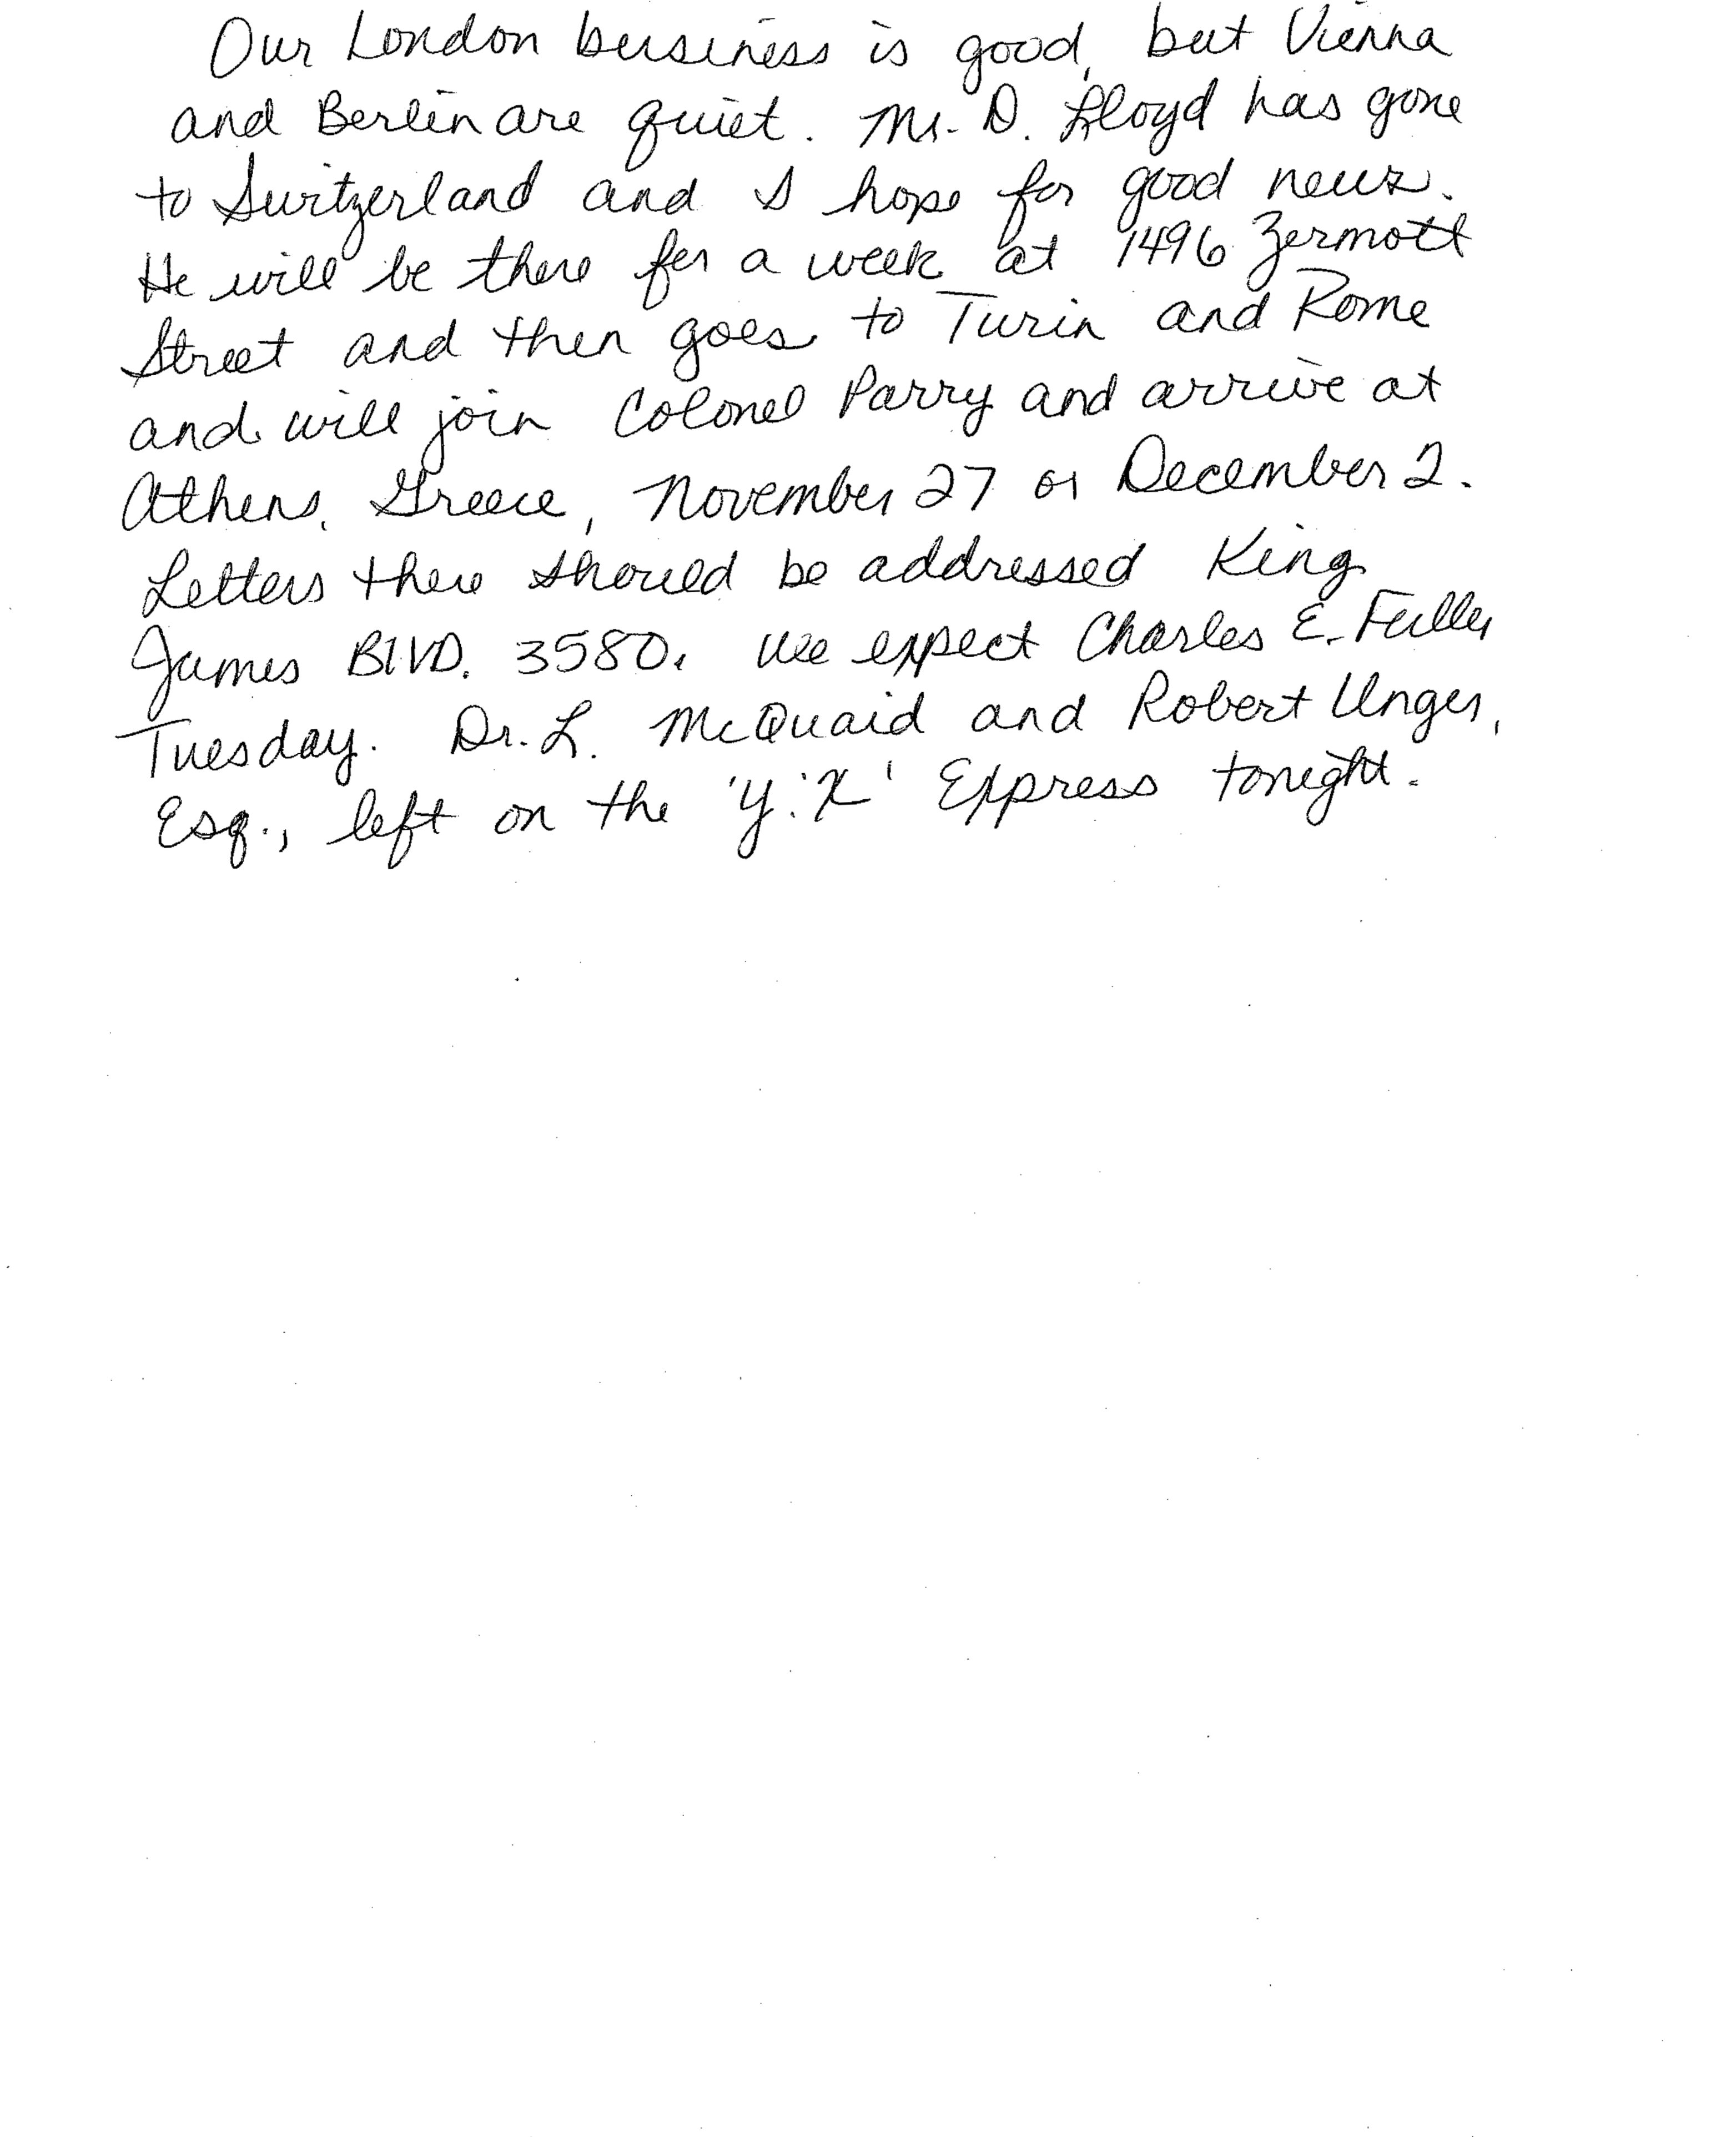 Our London business is good, but Vienna
and Berlin are quiet. Mr. D. Lloyd has gone
to Switzerland and I hope for good news.
He will be there for a week at 1496 Zermott
Street and then goes to Turin and Rome
and will join Colonel Parry and arrive at
Athens, Greece, November 27 or December 2.
Letters there should be addressed King
James BLVD. 3580. We expect Charles E. Fuller
Tuesday. Dr. L. McQuaid and Robert Unger,
Esq., left on the 'Y.X' Express tonight.